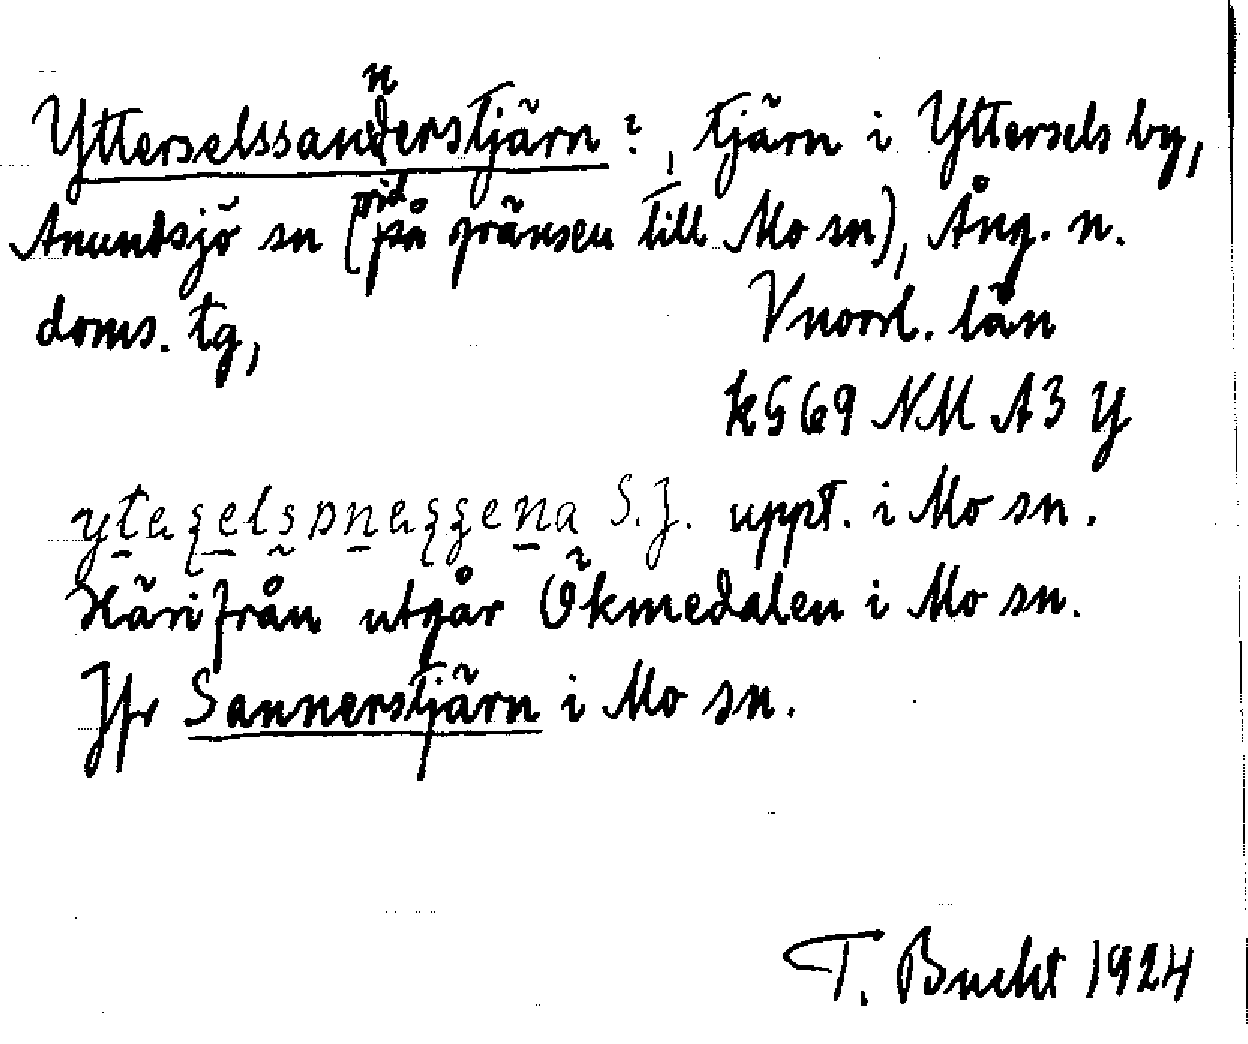 Ytterselssannderstjärn?, tjärn i Yttersels by,
Anundsjö sn (vid på gränsen till Mo sn), Ång. n.
doms. tg, Vnorrl. län
k 569 NM A3 y
S.J. uppt. i Mo sn.
Härifrån utgår Ökmedalen i Mo sn.
Jfr Sannerstjärn i Mo sn.
T. Bucht 1924